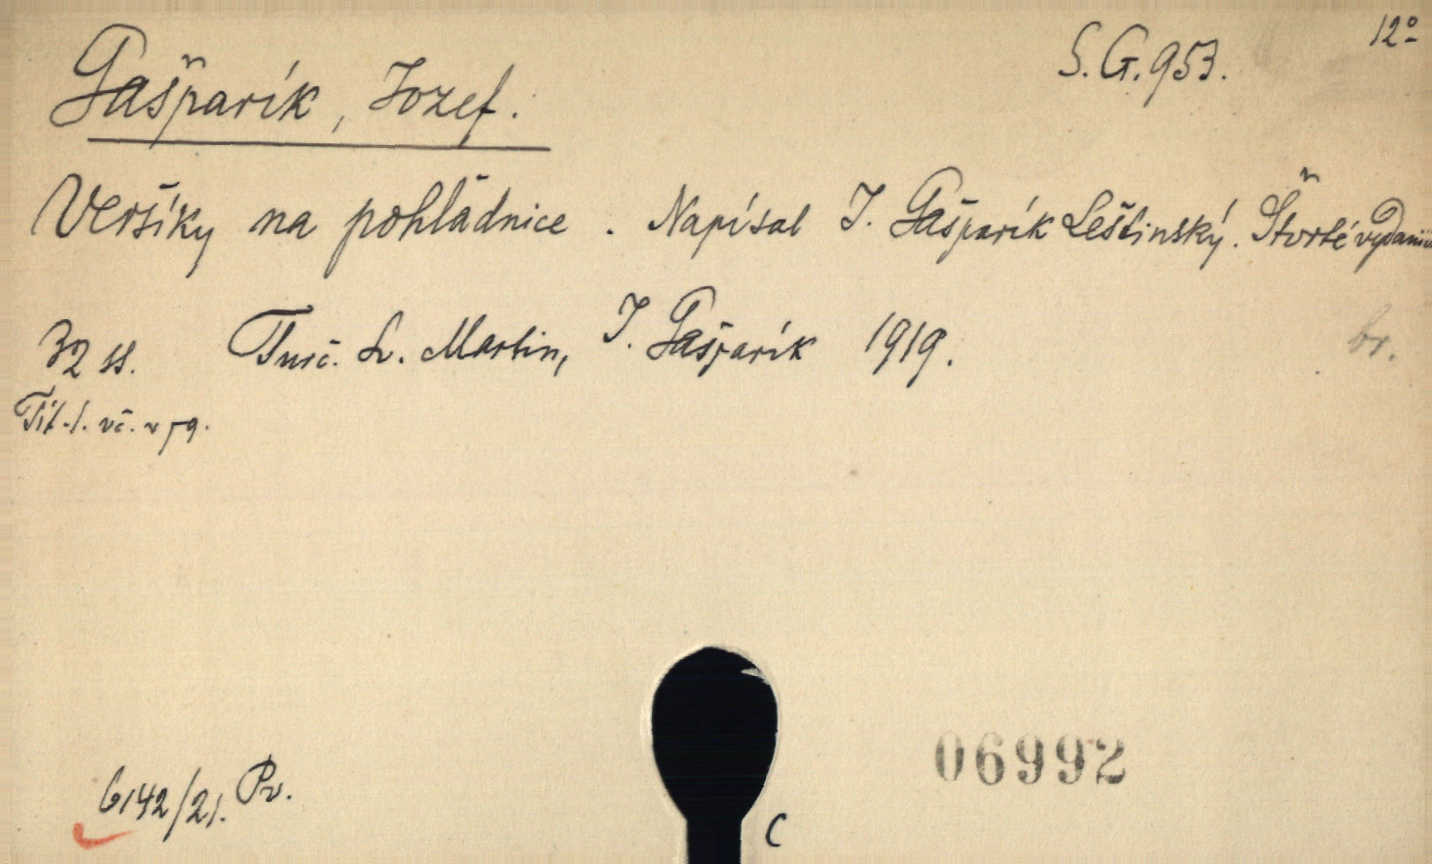 S. G. 953. 12º
Gašparík, Jozef.
Veršíky na pohládnice. Napísal J. Gašparík Leštinský. Štvrté vydanie
32 ss. Turč. Sv. Martin, J. Gašparík 1919. br.
Tit. l. vč. v pg.
6142/21. Pv.
06992
C